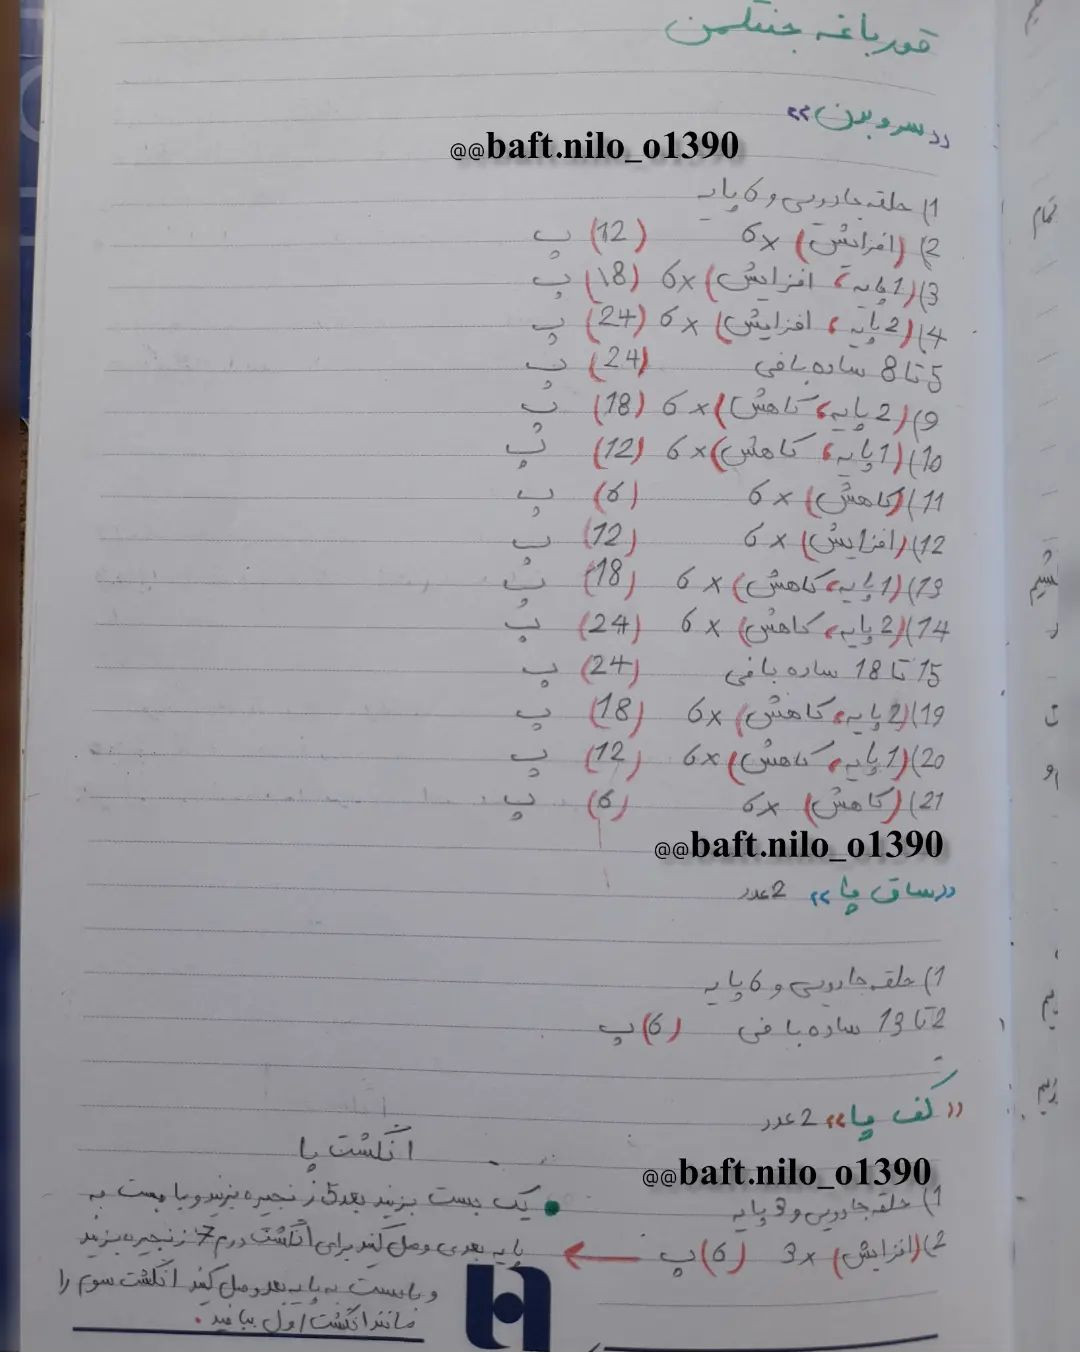 قورباغه جنتلمن
«سر و بدن»
@@baft.nilo_o1390
1) حلقه جادویی و 6 پایه
2) (افزایش) ×6 (12) پ
3) (1 پایه، افزایش) ×6 (18) پ
4) (2 پایه، افزایش) ×6 (24) پ
5 تا 8 ساده بافی (24) پ
9) (2 پایه، کاهش) ×6 (18) پ
10) (1 پایه، کاهش) ×6 (12) پ
11) (کاهش) ×6 (6) پ
12) (افزایش) ×6 (12) پ
13) (1 پایه، کاهش) ×6 (18) پ
14) (2 پایه، کاهش) ×6 (24) پ
15 تا 18 ساده بافی (24) پ
19) (2 پایه، کاهش) ×6 (18) پ
20) (1 پایه، کاهش) ×6 (12) پ
21) (کاهش) ×6 (6) پ
@@baft.nilo_o1390
«ساق پا» 2 عدد
1) حلقه جادویی و 6 پایه
2 تا 13 ساده بافی (6) پ
«کف پا» 2 عدد
@@baft.nilo_o1390
1) حلقه جادویی و 3 پایه
2) (افزایش) ×3 (6) پ
انگشت پا
یک بست بزنید بعد 5 زنجیره بزنید و با بست به
پایه بعدی وصل کنید برای انگشت دوم 7 زنجیره بزنید
و با بست به پایه بعد وصل کنید انگشت سوم را
مانند انگشت اول ببافید.